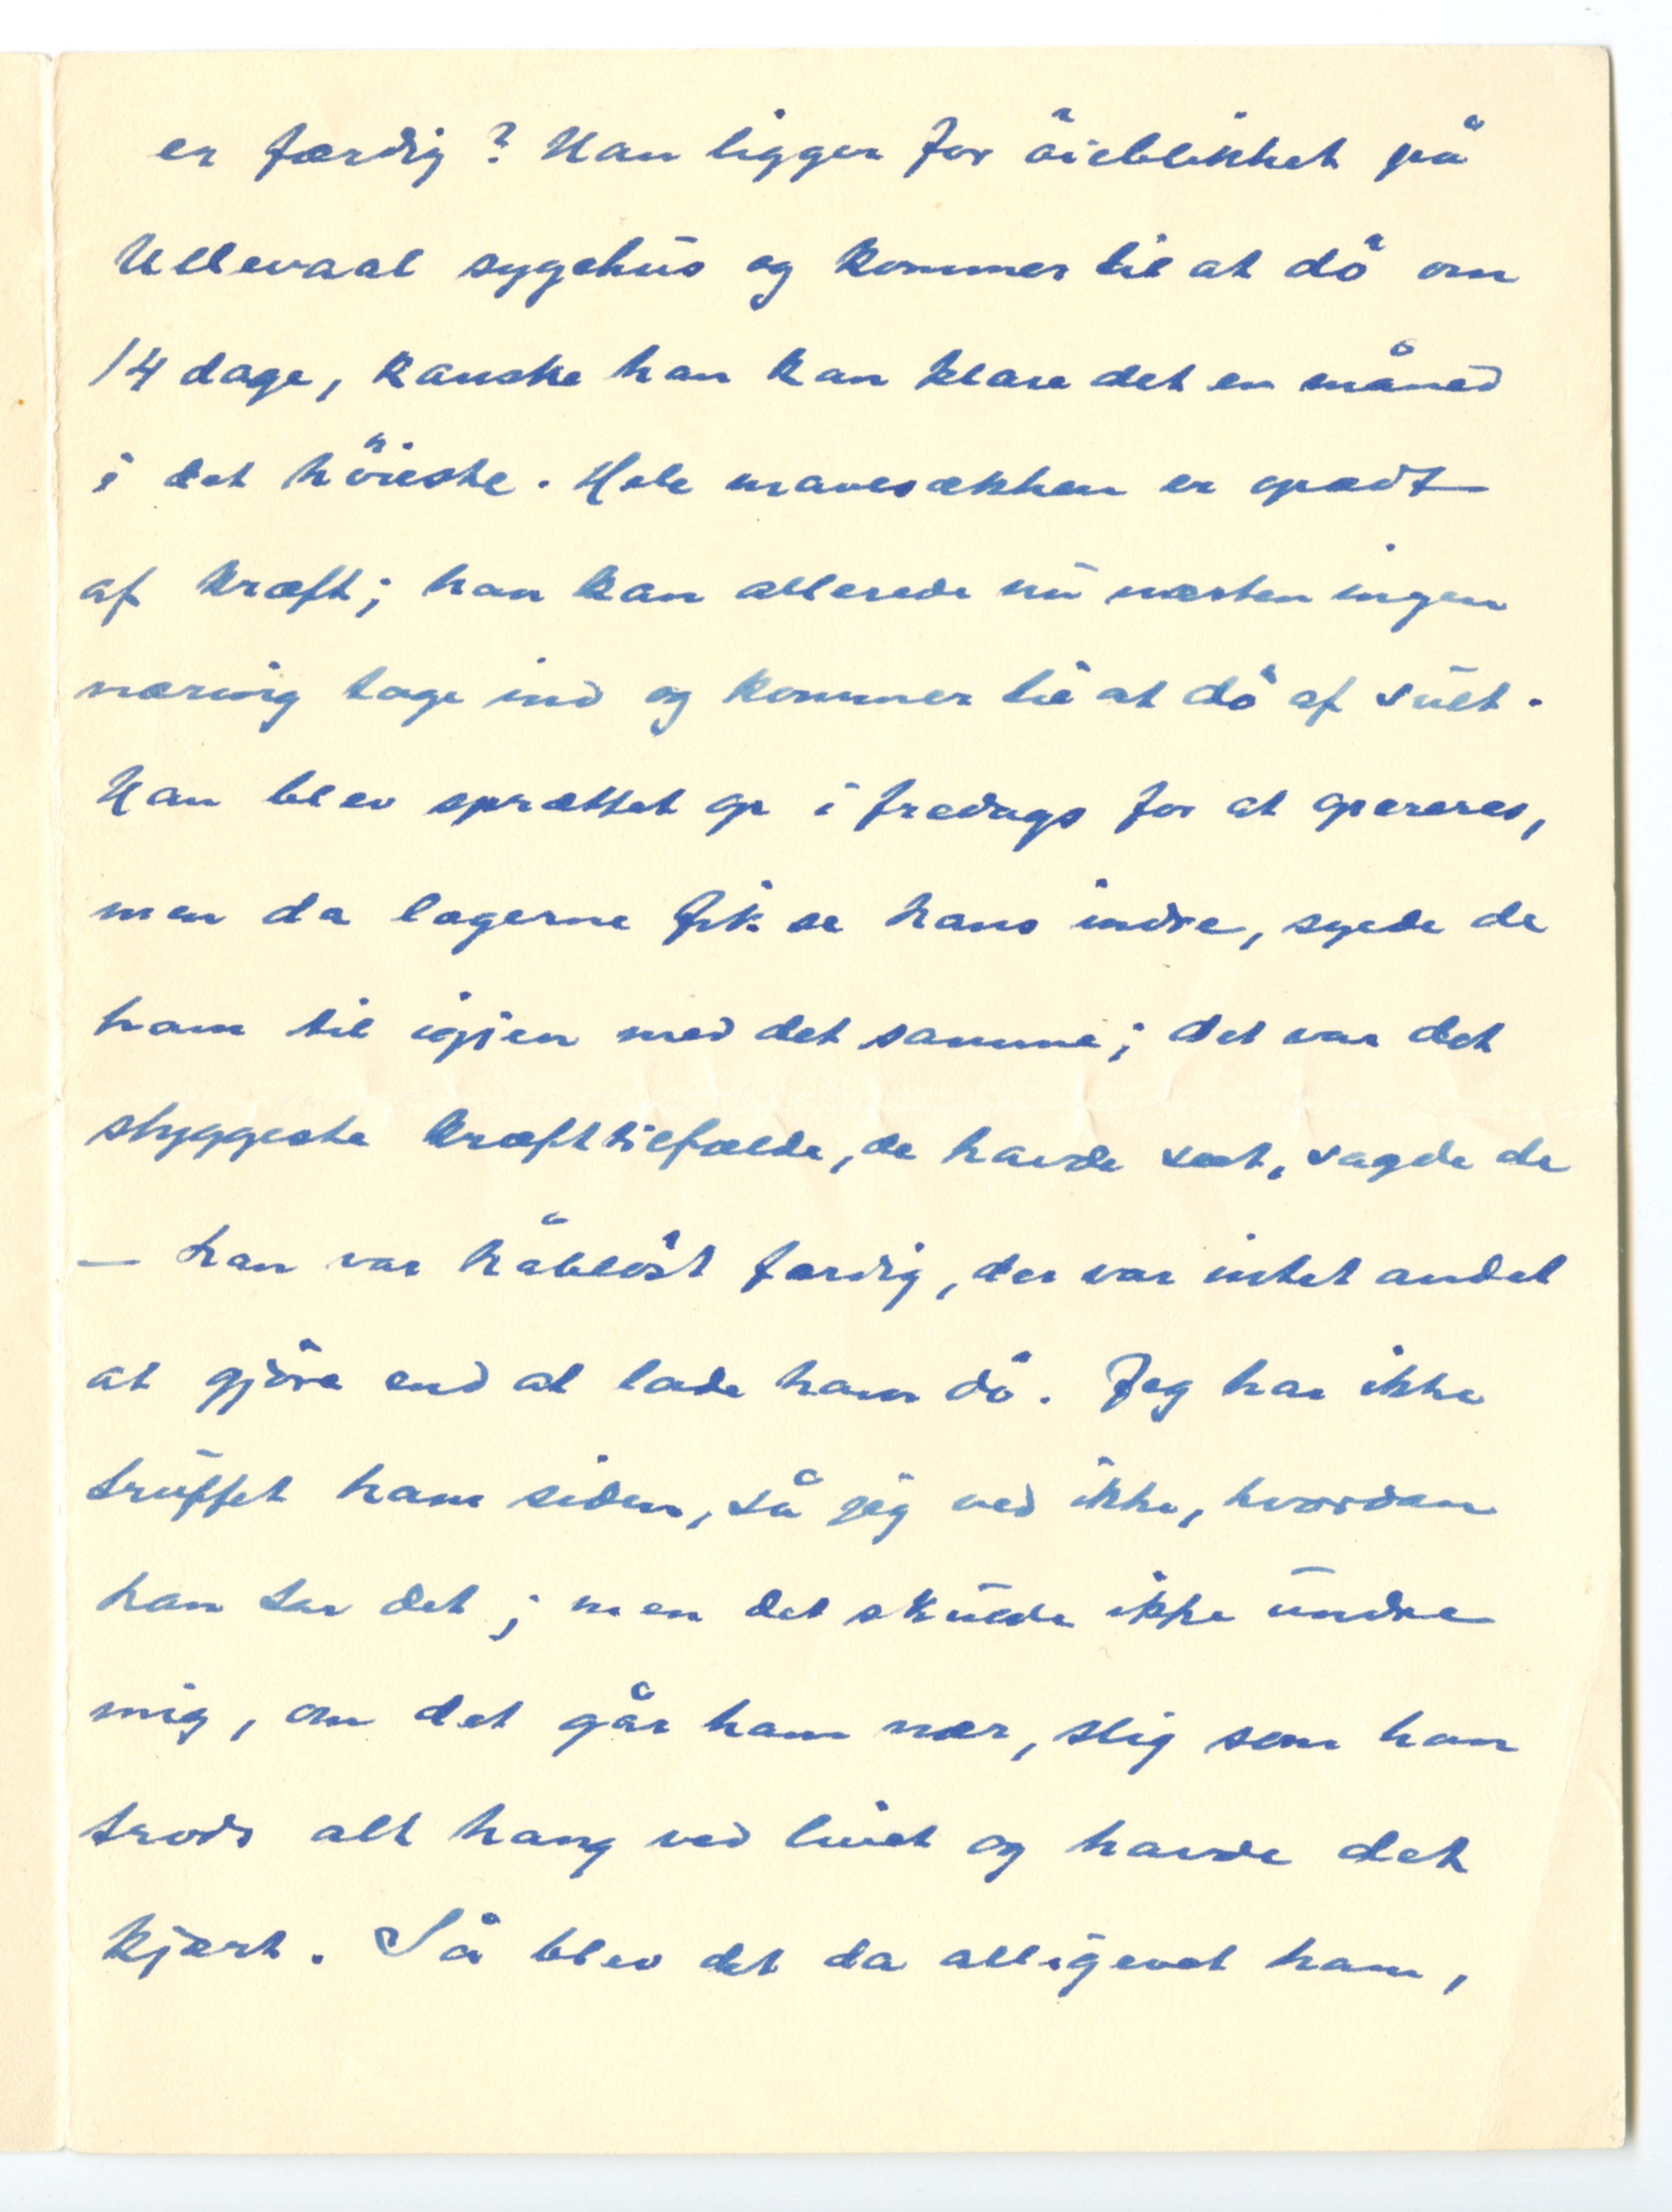 er færdig? Han ligger for öieblikket på
Ullevaal sygehus og kommer til at dö om
14 dage, kanske han kan klare det en måned
i det höieste. Hele mavesækken er opædt
af kræft; han kan allerede nu næsten ingen
næring tage ind og kommer til at dö af sult.
Han blev sprættet op i fredags for at opereres,
men da lægerne fik se hans indre, syede de
ham til igjen med det samme; det var det
styggeste kræfttilfælde, de havde set, sagde de
– han var håblöst færdig, der var intet andet
at gjöre end at lade ham dö. Jeg har ikke
truffet ham siden, så jeg ved ikke, hvordan
han tar det; men det skulde ikke undre
mig, om det går ham nær, slig som han
trods alt hang ved livet og havde det
kjært. Så blev det da alligevel ham,